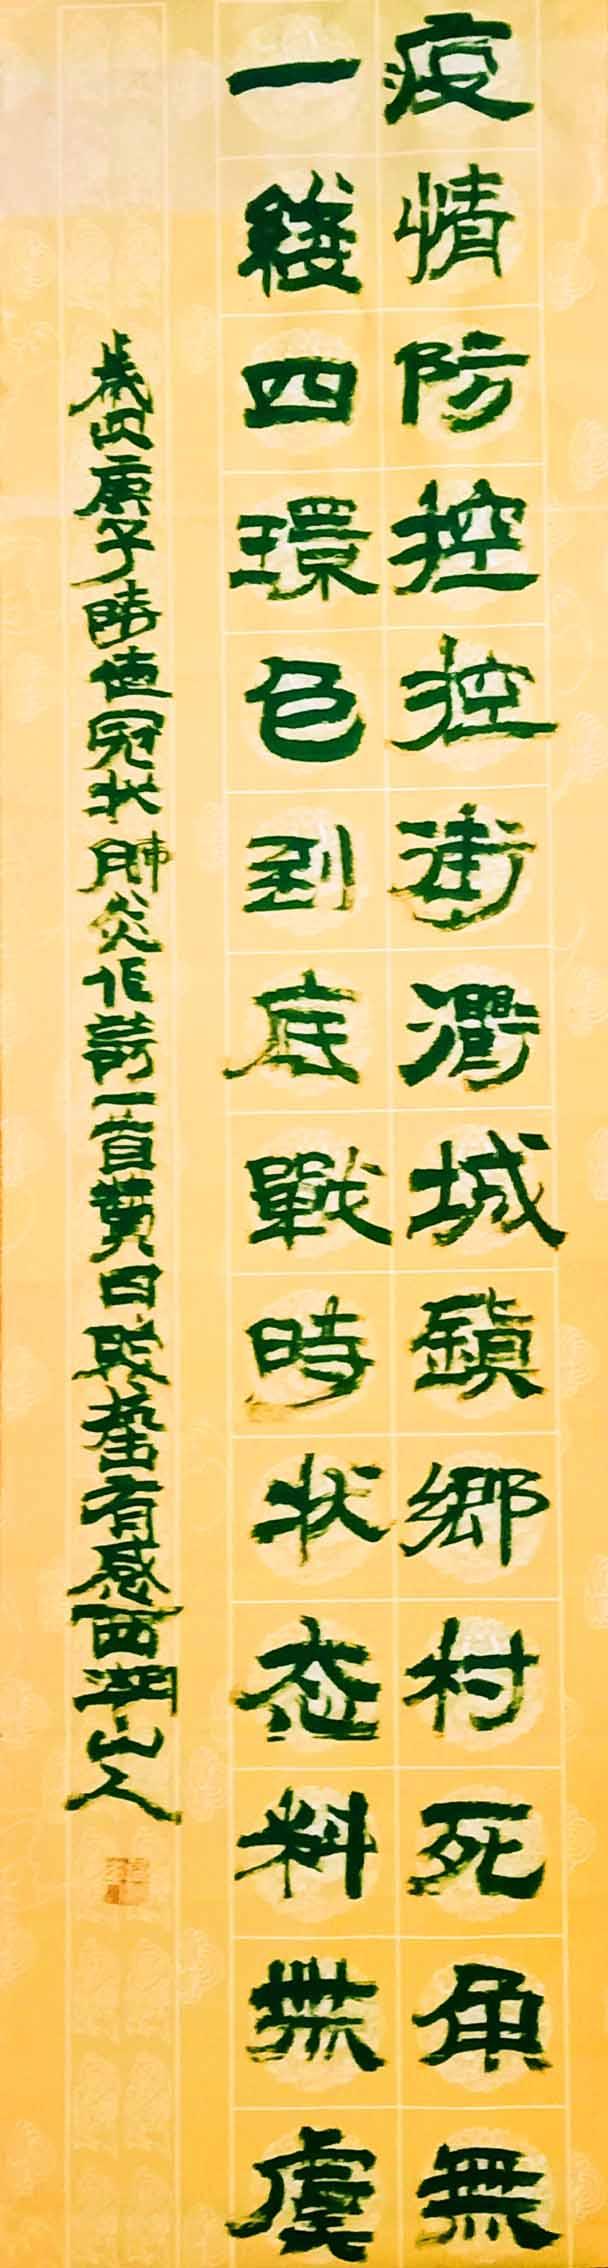 疫情防控控街衢城鎮鄉村死角無
一綫四環色到底戰時状态料無虞
歲庚子時值冠状肺炎作詩一首日有感西湖山人